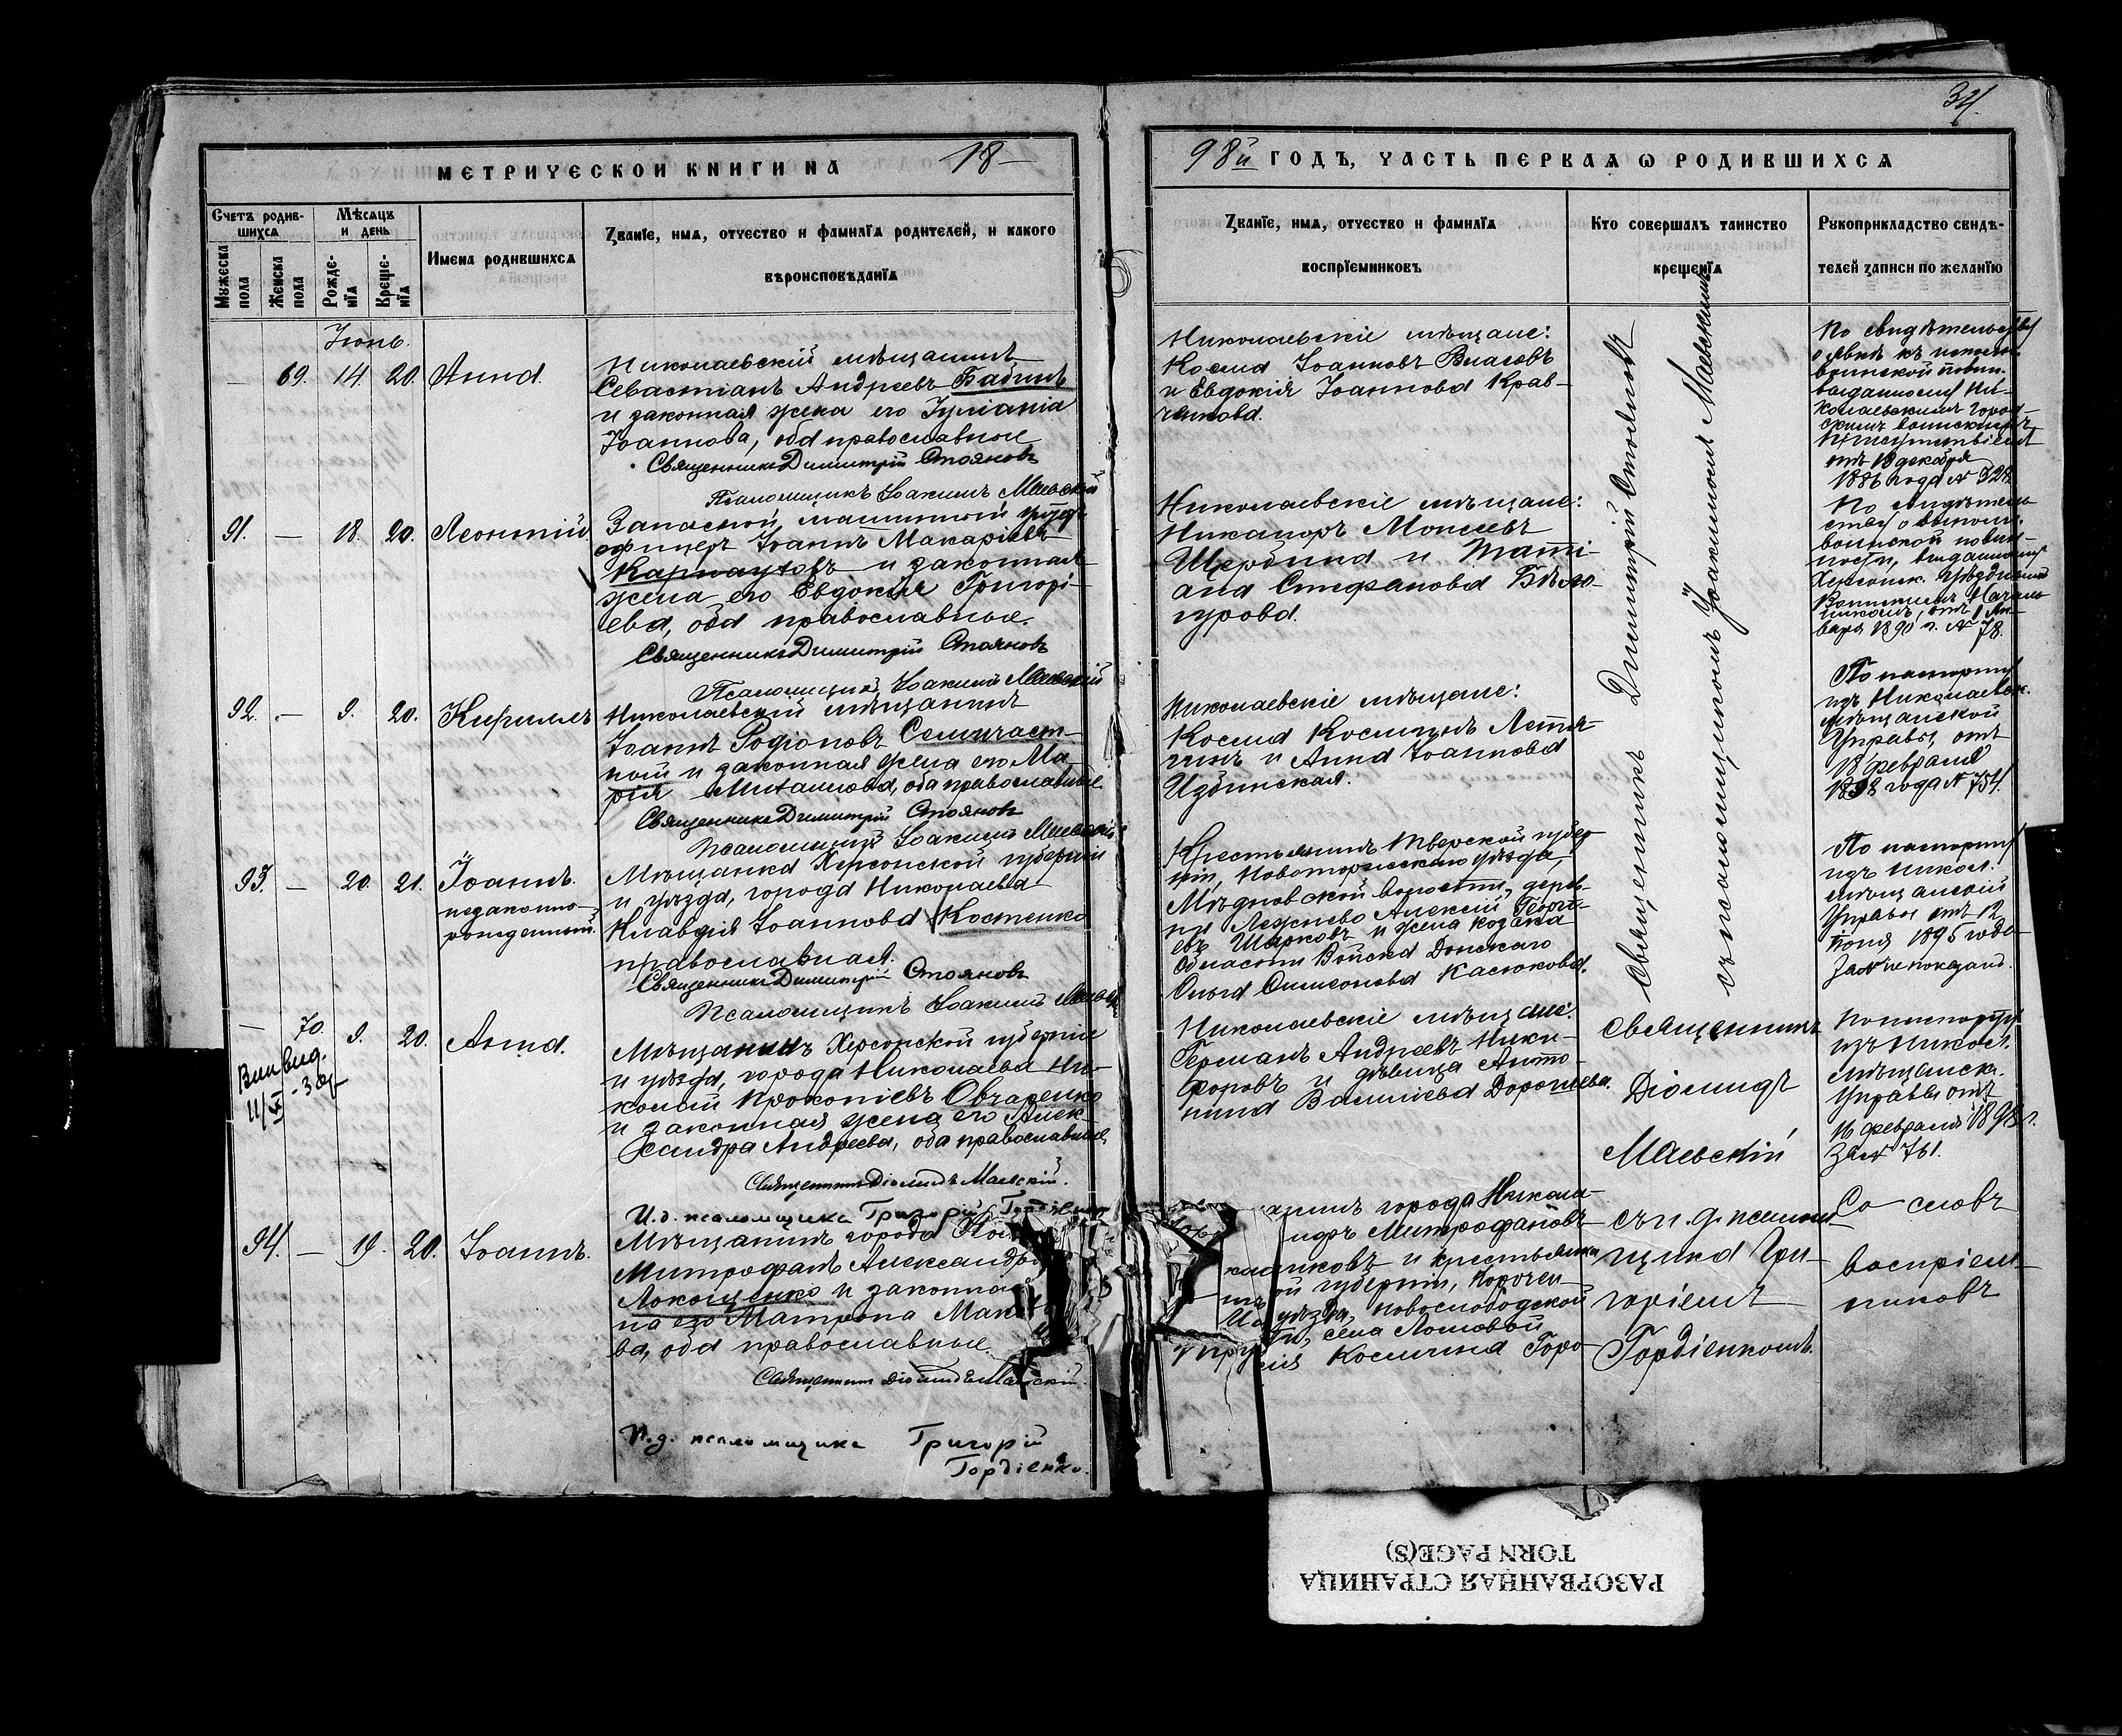 34.
МЕТРИЧЕСКОЙ КНИГИ НА 18-
98й ГОДЪ, ЧАСТЬ ПЕРВАЯ Ѡ РОДИВШИХСЯ
Счетъ родив-
шихся
Мѣсяцъ
и день
Мужеска
пола
Женска
пола
Рожде-
нїя
Креще-
нїя
Имена родившихся
Званїе, имя, отчество и фамилїя родителей, и какого
вѣроисповѣданїя
Званїе, имя, отчество и фамилїя
воспрїемниковъ
Кто совершалъ таинство
крещенїя
Рукоприкладство свидѣ-
телей записи по желанїю
Іюнь.
— 69. 14. 20. Анна.
Николаевскій мѣщанинъ
Севастіанъ Андреевъ Бабинъ
и законная жена его Іуліанія
Іоаннова, оба православные
Священникъ Димитрій Стояновъ
Псаломщикъ Іоакимъ Маевскій
Николаевскіе мѣщане:
Косма Іоанновъ Власовъ
и Евдокія Іоаннова Крав-
ченкова.
По свидѣтельству
о явкѣ къ исполн.
воинской повин.
выданному Ни-
колаевскимъ город-
скимъ воинскимъ
Присутствіемъ
отъ 18 декабря
1886 года №
91. — 18. 20. Леонтій
Запасной, машинный унтеръ
офицеръ Іоаннъ Макаріевъ
Карнауховъ и законная
жена его Евдокія Григорі-
ева, оба православные.
Священникъ Димитрій Стояновъ
Псаломщикъ Іоакимъ Маевскій
Николаевскіе мѣщане:
Никаноръ Моисеевъ
Щербина и Таті-
ана Стефанова Бѣло-
гурова.
По свидѣтель-
ству о выполн.
воинской повин-
ности, выданному
Херсонск. Уѣзднымъ
Воинскимъ Началь-
никомъ, отъ 1 Ян-
варя 1890 г. № 78.
92. — 9. 20. Кириллъ
Николаевскій мѣщанинъ
Іоаннъ Родіоновъ Семичаст-
ной и законная жена его Ма-
рія Михаилова, оба православные
Священникъ Димитрій Стояновъ
Псаломщикъ Іоакимъ Маевскій
Николаевскіе мѣщане:
Косма Косминъ
и Анна Іоаннова
Избинская.
По паспорту
изъ Николаевск.
мѣщанской
Управы, отъ
18 февраля
1898 года № 754.
Священникъ Димитрій Стояновъ
съ псаломщикомъ Іоакимомъ Маевскимъ
93. — 20. 21. Іоаннъ.
незаконно-
рожденный.
Мѣщанка Херсонской губерніи
и уѣзда, города Николаева
Клавдія Іоаннова Костенко
православная.
Священникъ Димитрій Стояновъ
Псаломщикъ Іоакимъ Маевскій
Крестьянинъ Тверской губер-
ніи, Новоторжскаго уѣзда,
Мѣдновской волости, дерев-
ни Лежнево Алексій Георгі-
евъ Шарковъ и жена козака
Области Войска Донскаго
Ольга Симеонова Касюкова.
По паспорту
изъ Никол.
мѣщанской
Управы отъ 12
Іюня 1896 года
За № не показано.
— 70. 9. 20. Анна.
Вып вид.
11/X - 30г
Мѣщанинъ Херсонской губерніи
и уѣзда, города Николаева Ни-
колай Прокопіевъ Овчаренко
и законная жена его Алек-
сандра Андреева, оба православные
Священникъ Діомидъ Маевскій.
И.д. псаломщика Григорій Гордіенко
Николаевскіе мѣщане:
Германъ Андреевъ Ники-
форовъ и дѣвица Анто-
нина Васильева Дорошева.
Священникъ
Діомидъ
Маевскій
По паспорту
изъ Никол.
мѣщанск.
Управы отъ
16 февраля 1898 г.
За № 761.
94. — 19. 20. Іоаннъ.
Мѣщанинъ города
Митрофанъ Александро
Локощенко и законная
на его Матрона Мак
ва, оба православные.
Священникъ Діомидъ Маевскій.
И.д. псаломщика Григорій
Гордіенко.
анинъ города Никола-
ндръ Митрофановъ
и крестьянка
ой губерніи, Корочен-
уѣзда, Новослободской
ти, села Ломовой
Космина Горо-
съ и.д. псалом-
щика Гри-
горіемъ
Гордіенкомъ.
Со словъ
воспріем-
никовъ
РАЗОРВАННАЯ СТРАНИЦА
TORN PAGE(S)